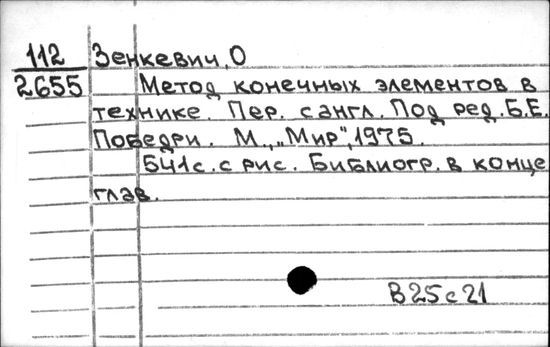 112 Зенкевич, О
2655 Метод конечных элементов в
технике. Пер. с англ. Под ред. Б.Е.
Победри. М., „Мир", 1975.
541с. с рис. Библиогр. в конце
глав.
В25с21